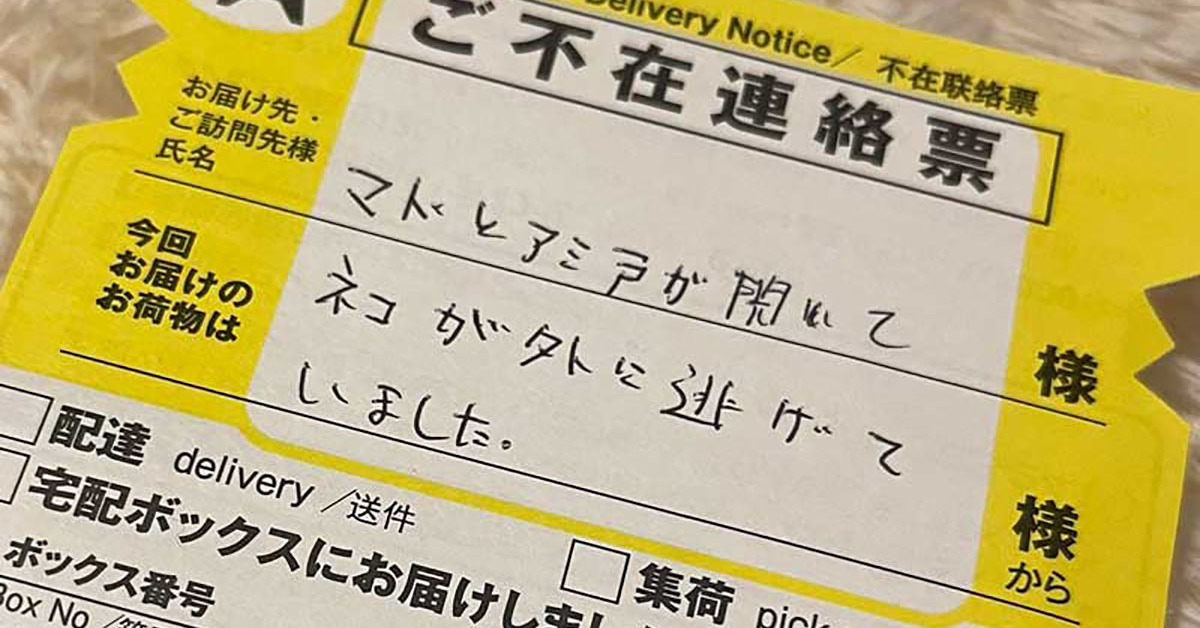 Delivery Notice／不在联络票
ご不在連絡票
お届け先・
ご訪問先様
氏名
マドとアミ戸が開いて
様
今回
お届けの
お荷物は
ネコが外に逃げて
しいました。
様
から
配達 delivery／送件
宅配ボックスにお届けしまし
集荷
ボックス番号
Box No.